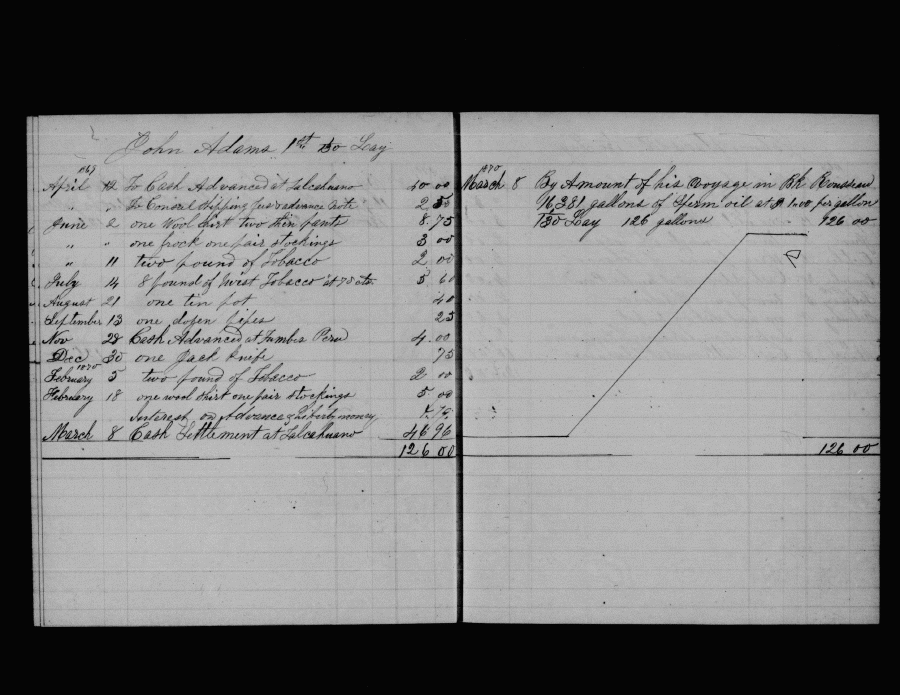 John Adams 1st 130 Lay
1869
April 12 To Cash Advanced at Talcahuano 40 00
" " To Consul Shipping fees & advance note 2 50
June 2 one Wool Shirt two thin pants 8.75
" " one frock one pair stockings 3 00
" 11 two pound of Tobacco 2 00
July 14 8 pound of twist Tobacco at 70 cts 5 60
August 21 one tin pot 40
September 13 one dozen pipes 25
Nov 28 Cash Advanced at Tumbes Peru 4.00
Dec 30 one Jack Knife 75
1870
February 5 two pound of Tobacco 2 00
February 18 one wool shirt one pair stockings 5 00
Interest on Advance & Liberty money
March 8 Cash Settlement at Talcahuano 46 96
126 00
1870
March 8 By Amount of his Voyage in Bk Rousseau
16,381 gallons of Sperm oil at $1.00 per gallon
1/130 Lay 126 gallons 126 00
126 00